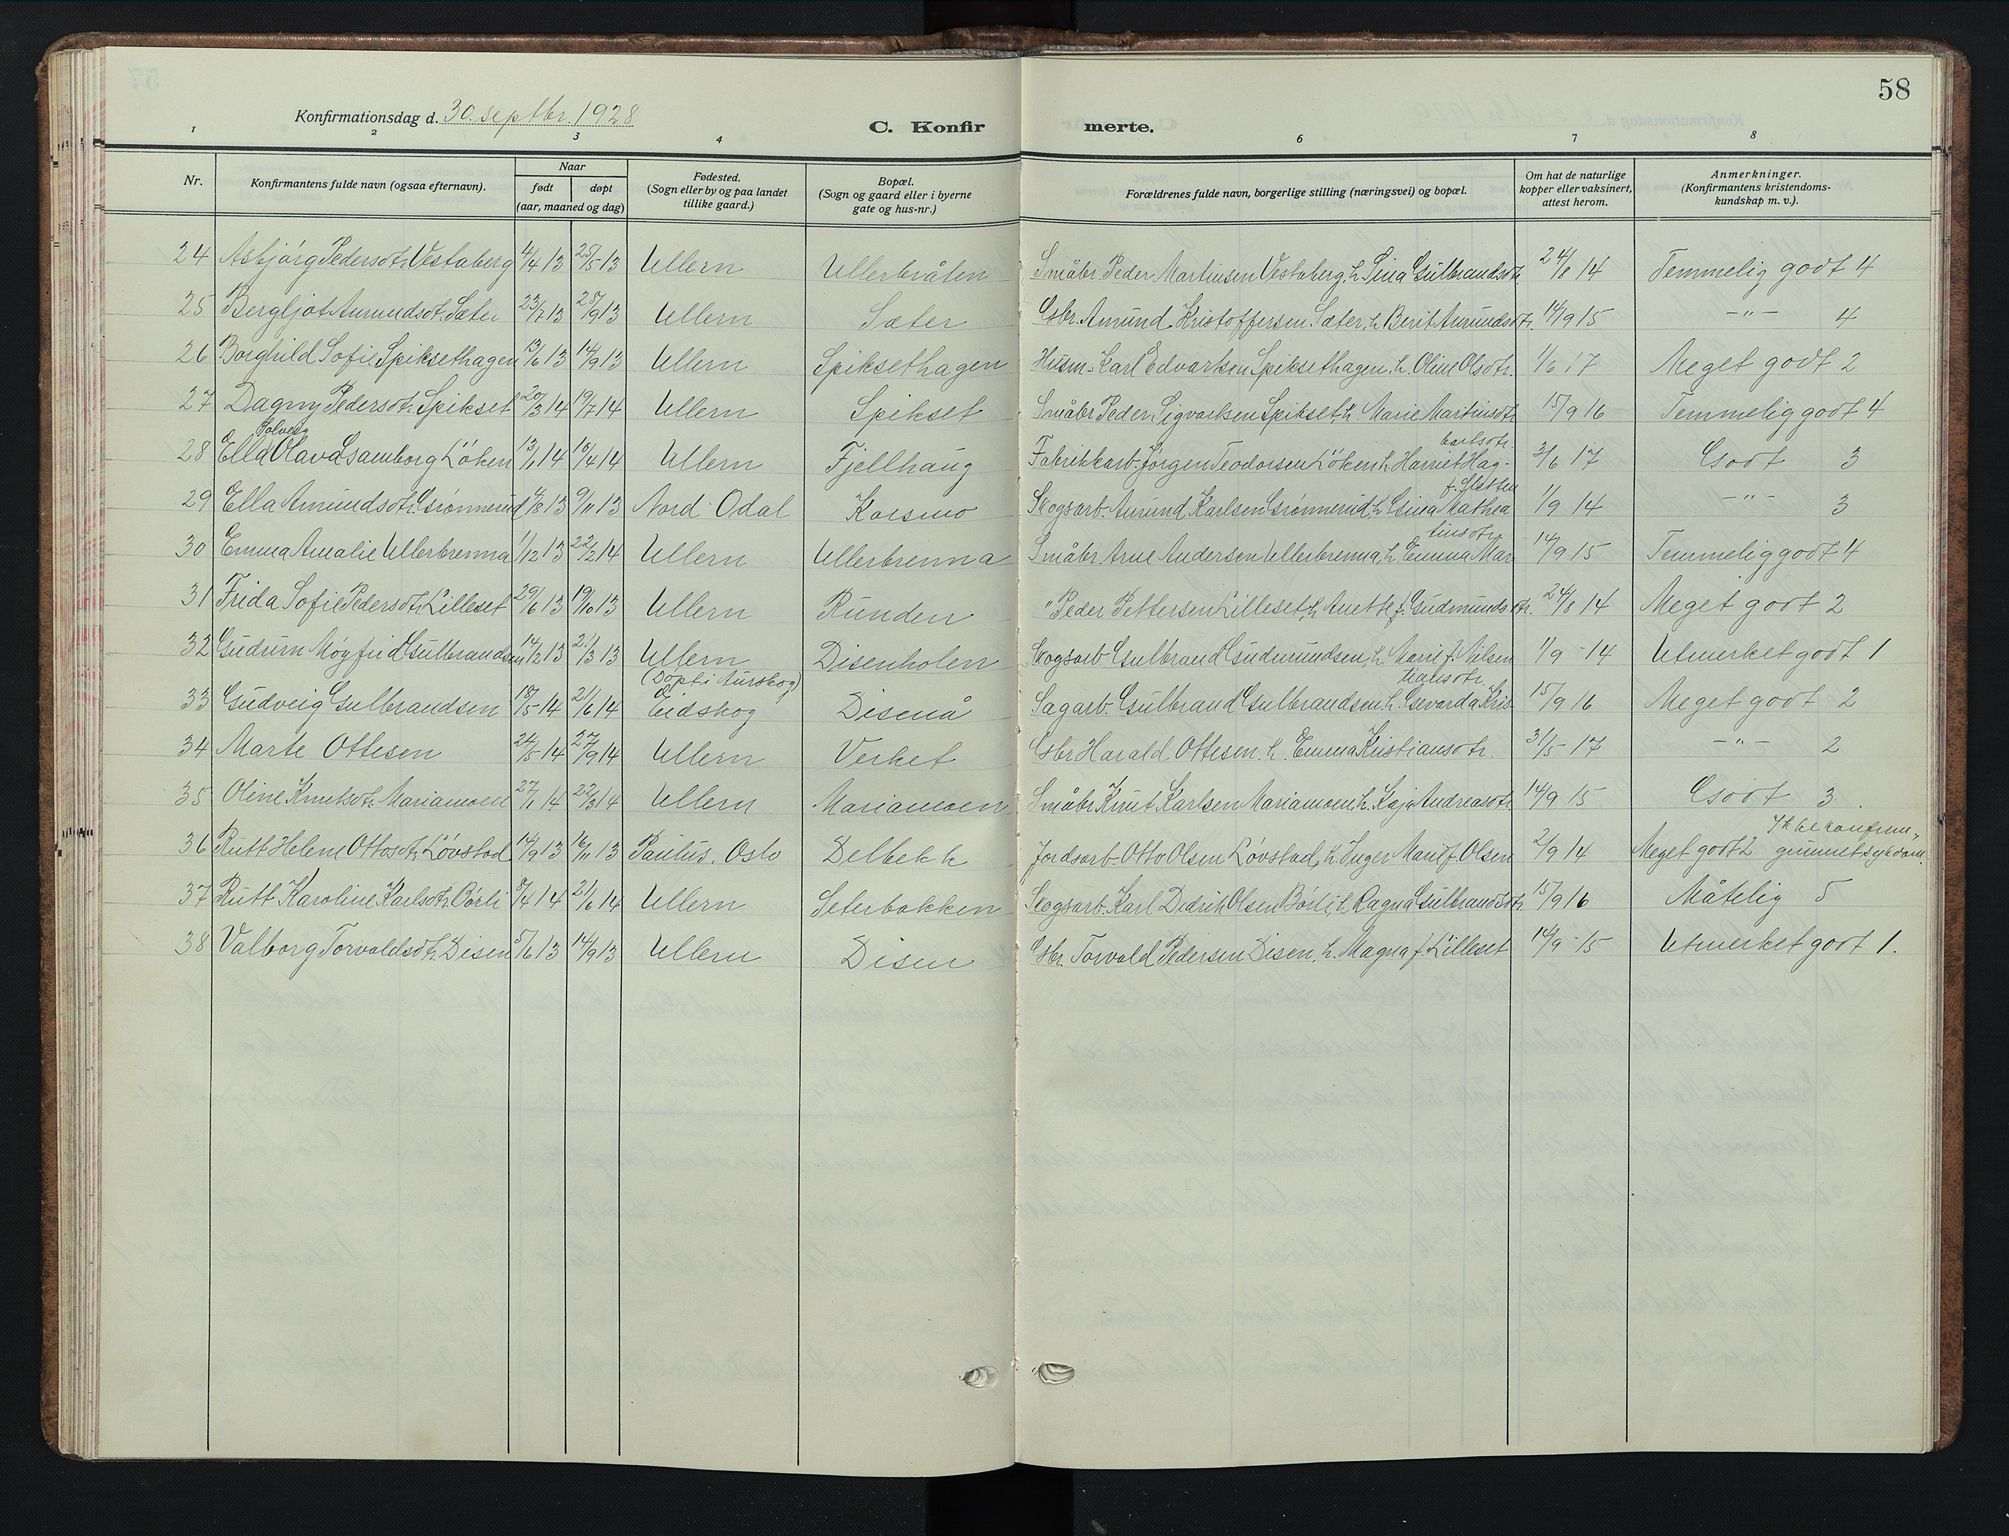 58
Konfirmationsdag d. 30. septbr. 1928
C. Konfirmerte.
1 2 3 4 6 7 8
Nr. Konfirmantens fulde navn (ogsaa efternavn). Naar født døpt (aar, maaned og dag) Fødested. (Sogn eller by og paa landet tillike gaard.) Bopæl. (Sogn og gaard eller i byerne gate og hus-nr.) Forældrenes fulde navn, borgerlige stilling (næringsvei) og bopæl. Om hat de naturlige kopper eller vaksinert, attest herom. Anmerkninger. (Konfirmantens kristendomskundskap m. v.).
24 Asbjörg Pedersdtr. Vestaberg 4/4 13 25/5 13 Ullern Ullerbråten Småbr. Peder Martinsen Vestaberg, h. Sina Gulbrandsdtr. 24/8 14 Temmelig godt 4
25 Bergljot Amundsdt. Sæter 23/7 13 28/9 13 Ullern Sæter Gbr. Amund Kristoffersen Sæter, h. Berit Amundsdtr. 14/9 15 -"- 4
26 Borghild Sofie Spiksethagen 13/6 13 14/9 13 Ullern Spiksethagen Husm. Karl Edvartsen Spiksethagen, h. Oline Olsdtr. 1/6 17 Meget godt 2
27 Dagny Pedersdtr. Spikset 20/3 14 19/7 14 Ullern Spikset Småbr. Peder Sigvartsen Spikset, h. Marie Martinsdtr 15/9 16 Temmelig godt 4
28 Ella Solveig Olava Isamborg Löken 13/1 14 10/4 14 Ullern Fjellhaug Fabrikkarb. Jörgen Teodorsen Löken h. Harriet Hagbartsdtr. 3/6 17 Godt 3
29 Ella Amundsdtr. Grønnerud 4/8 13 9/11 13 Nord-Odal Korsmo Skogsarb. Amund Karlsen Grønnerud, h. Gina Mathea f. Sletten 1/9 14 -"- 3
30 Emma Amalie Ullerbrenna 1/12 13 22/2 14 Ullern Ullerbrenna Småbr. Arne Andersen Ullerbrenna, h. Emma Martinsdtr. 14/9 15 Temmelig godt 4
31 Frida Sofie Pedersdtr. Lilleset 29/6 13 19/10 13 Ullern Runden " Peder Pettersen Lilleset, h. Anette f. Gudmundsdtr. 24/8 14 Meget godt 2
32 Gudrun Møyfrid Gulbrandsen 14/2 13 21/3 13 Ullern (Döpt i Aurskog) Disenholen Skogsarb. Gulbrand Gudmundsen, h. Marie f. Nilsen 1/9 - 14 Utmerket godt 1
33 Gudveig Gulbrandsen 18/5 14 21/6 14 Eidskog Disenå Sagarb. Gulbrand Gulbrandsen h. Gevarda Kristiansdtr. 15/9 16 Meget godt 2
34 Marte Ottesen 24/5 14 27/9 14 Ullern Verket Gbr Harald Ottesen. h. Emma Kristiansdtr. 31/5 - 17 -"- 2
35 Oline Knutsdtr. Mariamoen 27/1 14 22/3 14 Ullern Mariamoen Småbr. Knut Karlsen Mariamoen h. Kaja Andreasdtr. 14/9 15 Godt 3.
36 Rutt Helene Ottosdtr. Lövstad 14/9 13 16/11 13 Paulus, Oslo Delbekk Jordsarb. Otto Olsen Lövstad, h. Inger Marie f. Olsen 2/9 14 Meget godt 2 Ikke konfirm. grunnet sykdom.
37 Rutt Karoline Karlsdtr. Börli 8/4 14 21/6 14 Ullern Seterbakken Skogsarb. Karl Didrik Olsen Börli, h. Ragna Gulbrandsdtr. 15/9 16 Måtelig 5
38 Valborg Torvaldsdtr. Disen 5/6 13 14/9 13 Ullern Disen Gbr. Torvald Pedersen Disen, h. Magna f. Lilleset 14/9 - 15 Utmerket godt 1.